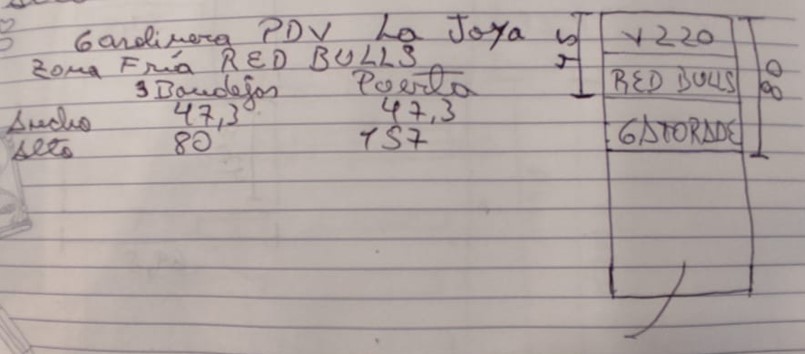 Gardinera PDV La Joya
Zona Fría RED BULLS
3 Bandejas Puerta
Ancho 47,3 47,3
Alto 80 157
V220
RED BULLS
GATORADE
80